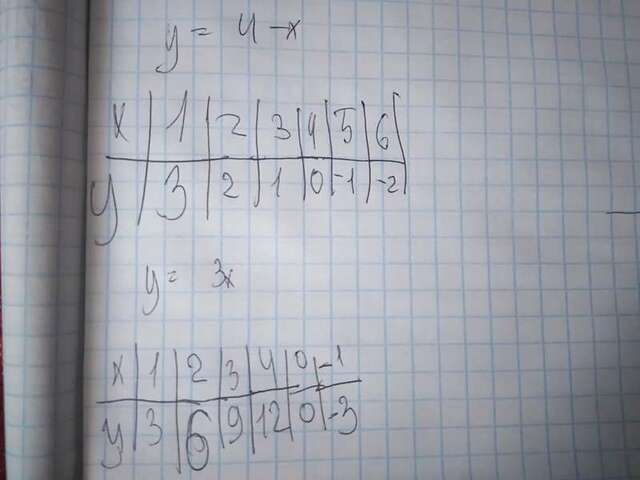 y = 4 - x
x | 1 | 2 | 3 | 4 | 5 | 6 |
y | 3 | 2 | 1 | 0 | -1 | -2 |
y = 3x
x | 1 | 2 | 3 | 4 | 0 | -1
y | 3 | 6 | 9 | 12 | 0 | -3